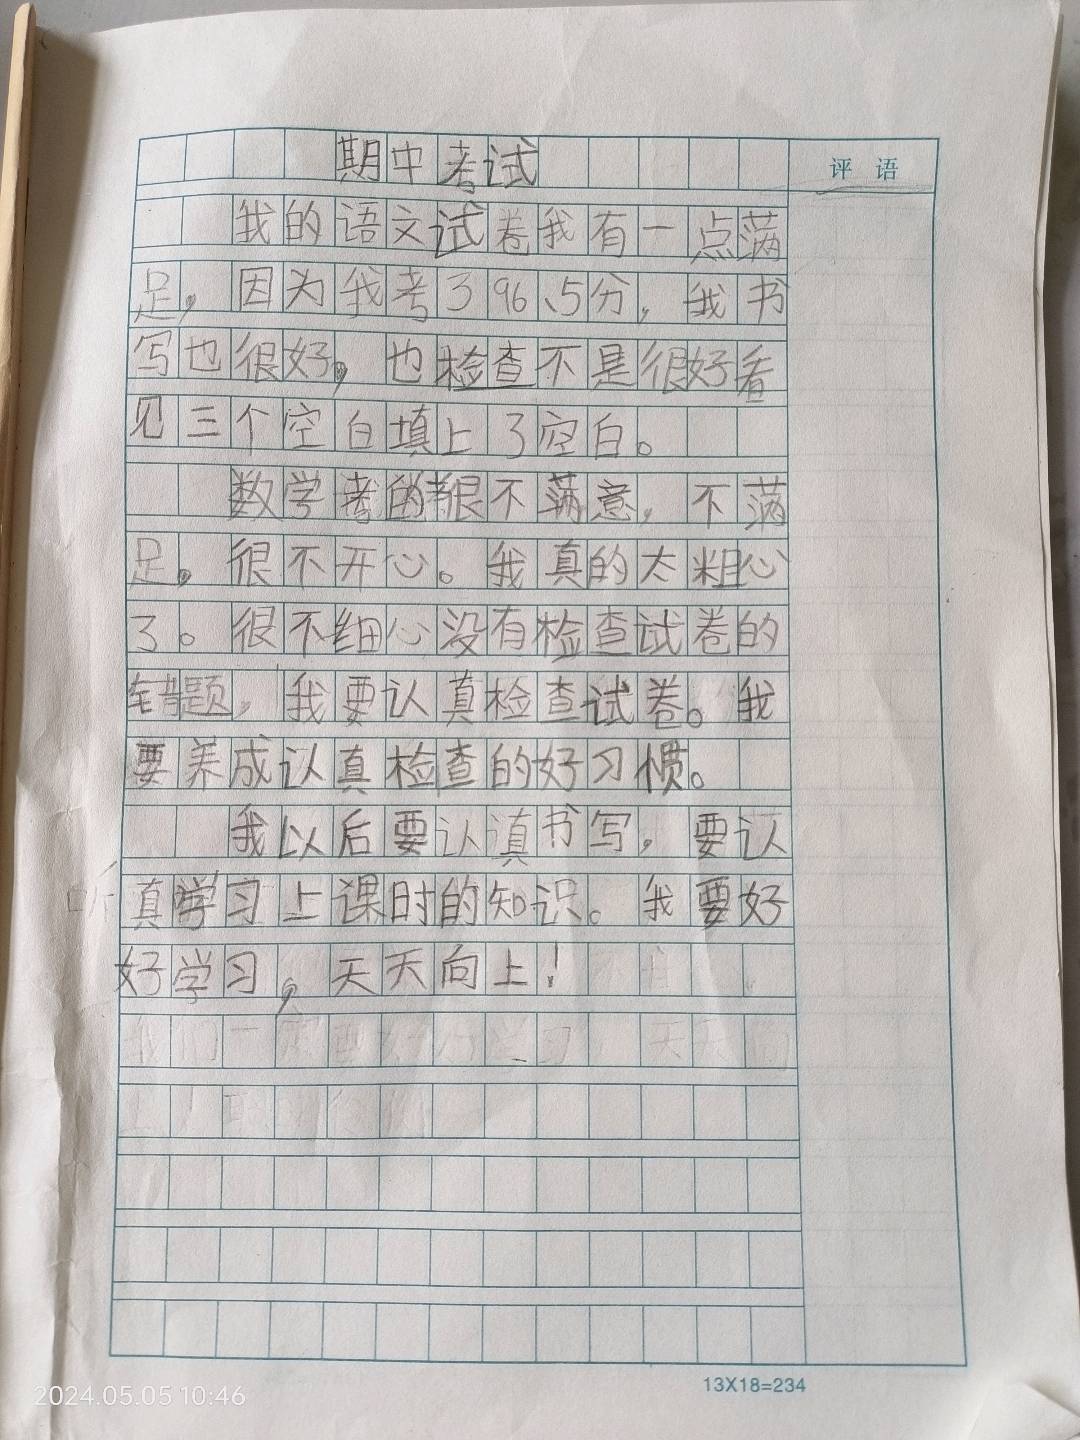 期中考试
评 语
我的语文试卷我有一点满
足，因为我考了96.5分，我书
写也很好，也检查不是很好看
见三个空白填上了空白。
数学考的我很不满意，不满
足，很不开心。我真的太粗心
了。很不细心没有检查试卷的
错题，我要认真检查试卷。我
要养成认真检查的好习惯。
我以后要认真书写，要认
真学习上课时的知识。我要好
好学习，天天向上！
13X18=234
2024.05.05 10:46